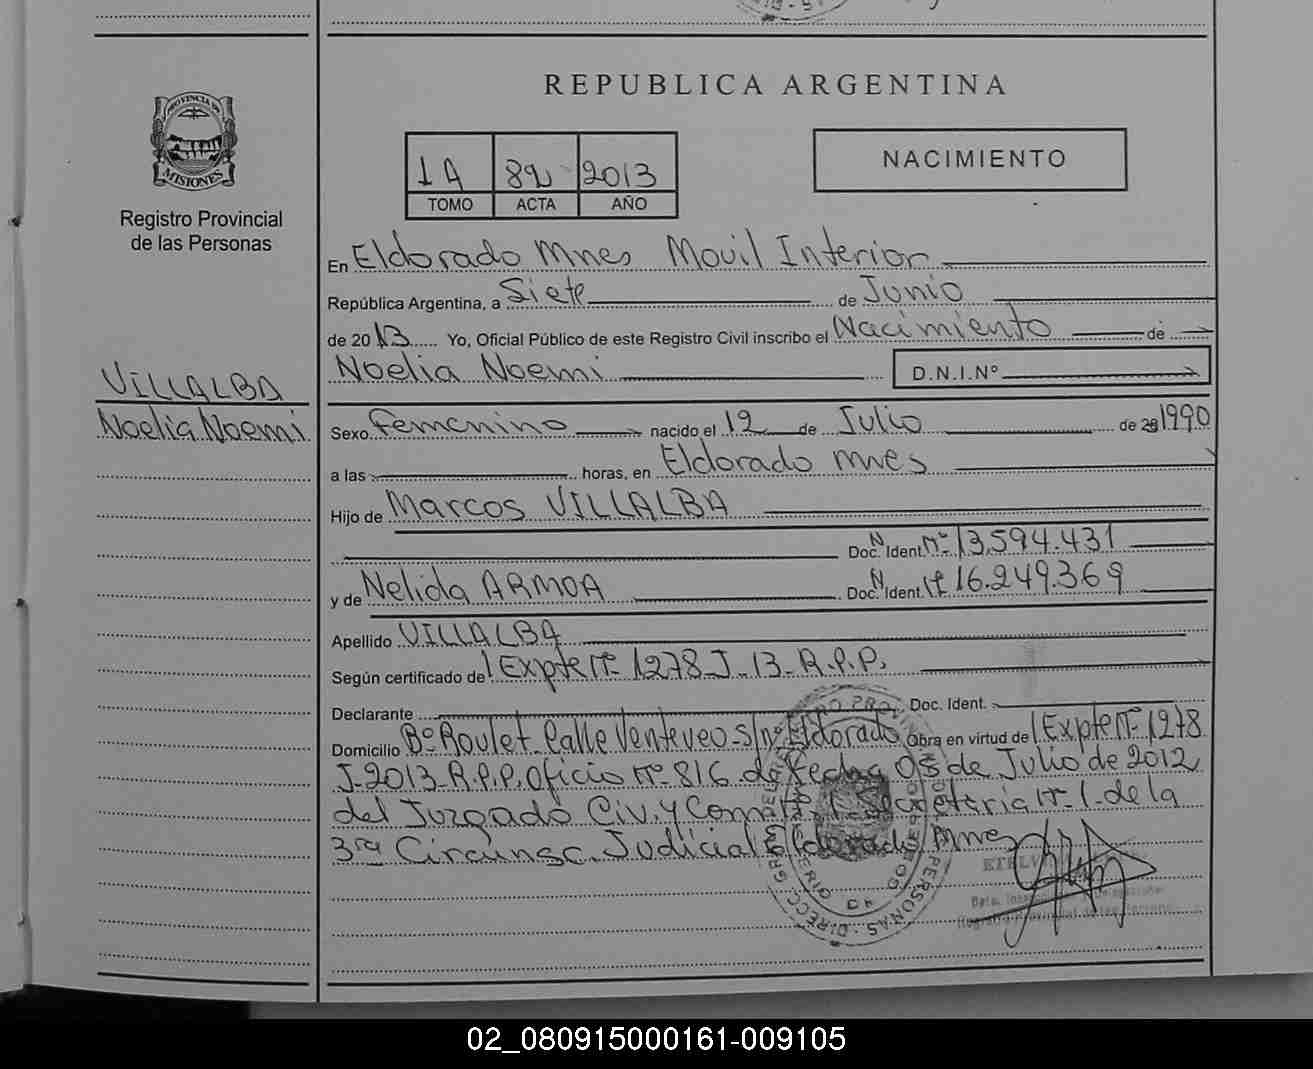 REPUBLICA ARGENTINA
PROVINCIA DE
MISIONES
Registro Provincial
de las Personas
1A 82 2013
TOMO ACTA AÑO
NACIMIENTO
En Eldorado Mnes Movil Interior
República Argentina, a Siete de Junio
de 2013 Yo, Oficial Público de este Registro Civil inscribo el Nacimiento de
Noelia Noemi D.N.I.Nº
VILLALBA
Noelia Noemi
Sexo Femenino nacido el 12 de Julio de 1990
a las horas, en Eldorado Mnes
Hijo de Marcos VILLALBA
Doc. Ident. Nº 13.594.431
y de Nelida ARMOA Doc. Ident. Nº 16.249.369
Apellido VILLALBA
Según certificado de Expte Nº 1278-J-13-R.P.P.
Declarante Doc. Ident.
Domicilio Bº Roulet-Calle Venteveo-s/nº Eldorado Obra en virtud de Expte Nº 1278
J-2013-R.P.P. Oficio Nº 816 de Fecha 03 de Julio de 2012
del Juzgado Civ. y Secretaria Nº 1 de la
3ra Circunsc. Judicial Eldorado Mnes
02_080915000161-009105